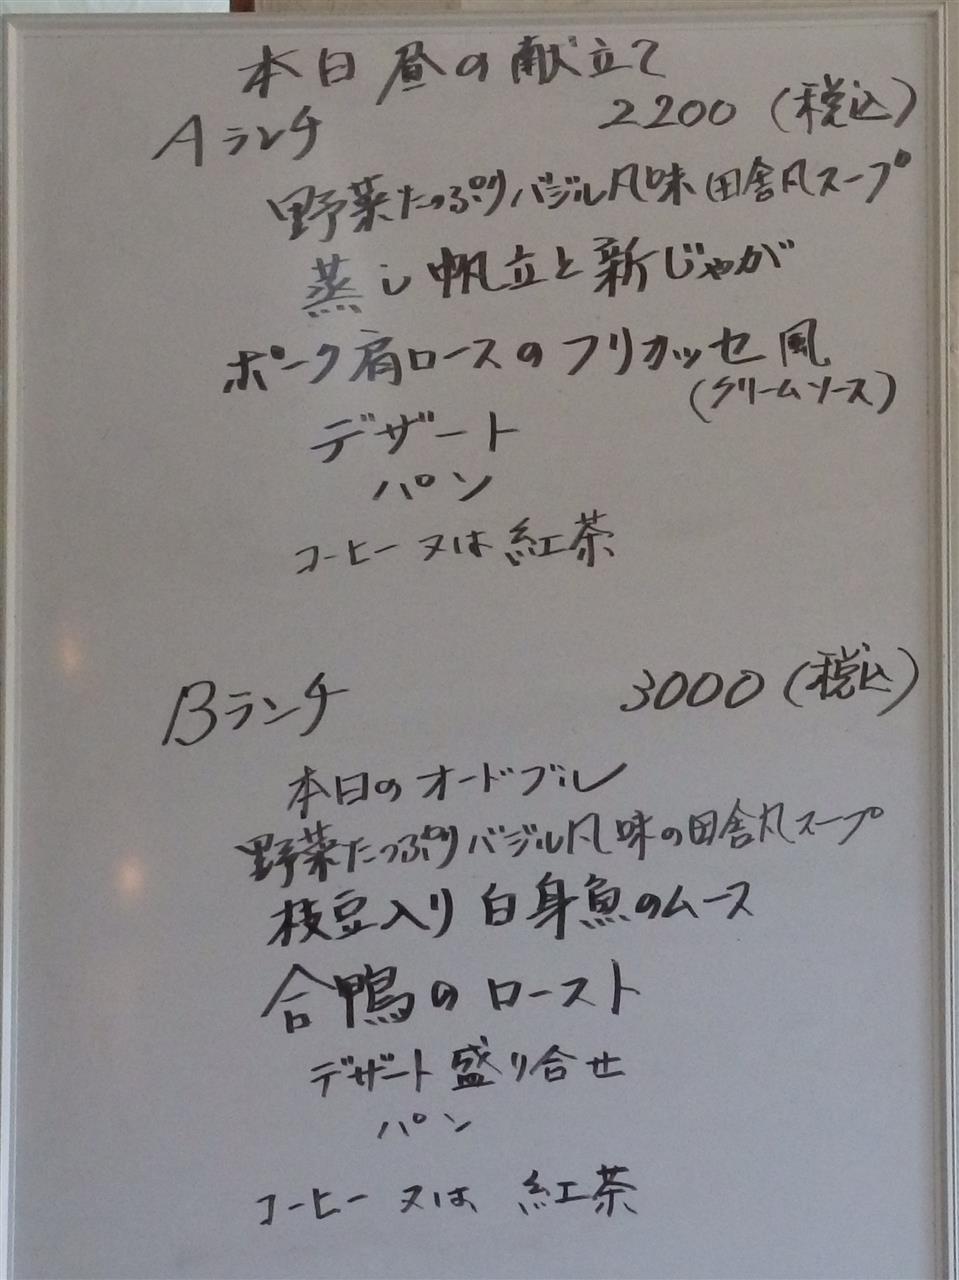 本日昼の献立て
Aランチ 2200(税込)
野菜たっぷりバジル風味田舎風スープ
蒸し帆立と新じゃが
ポーク肩ロースのフリカッセ風
(クリームソース)
デザート
パン
コーヒー又は紅茶
Bランチ 3000(税込)
本日のオードブル
野菜たっぷりバジル風味の田舎風スープ
枝豆入り白身魚のムース
合鴨のロースト
デザート盛り合せ
パン
コーヒー又は 紅茶